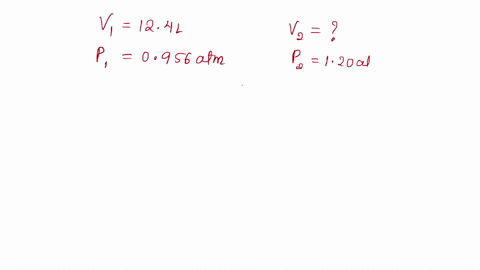 V₁ = 12.4L
P₁ = 0.956 atm
V₂ = ?
P₂ = 1.20 at